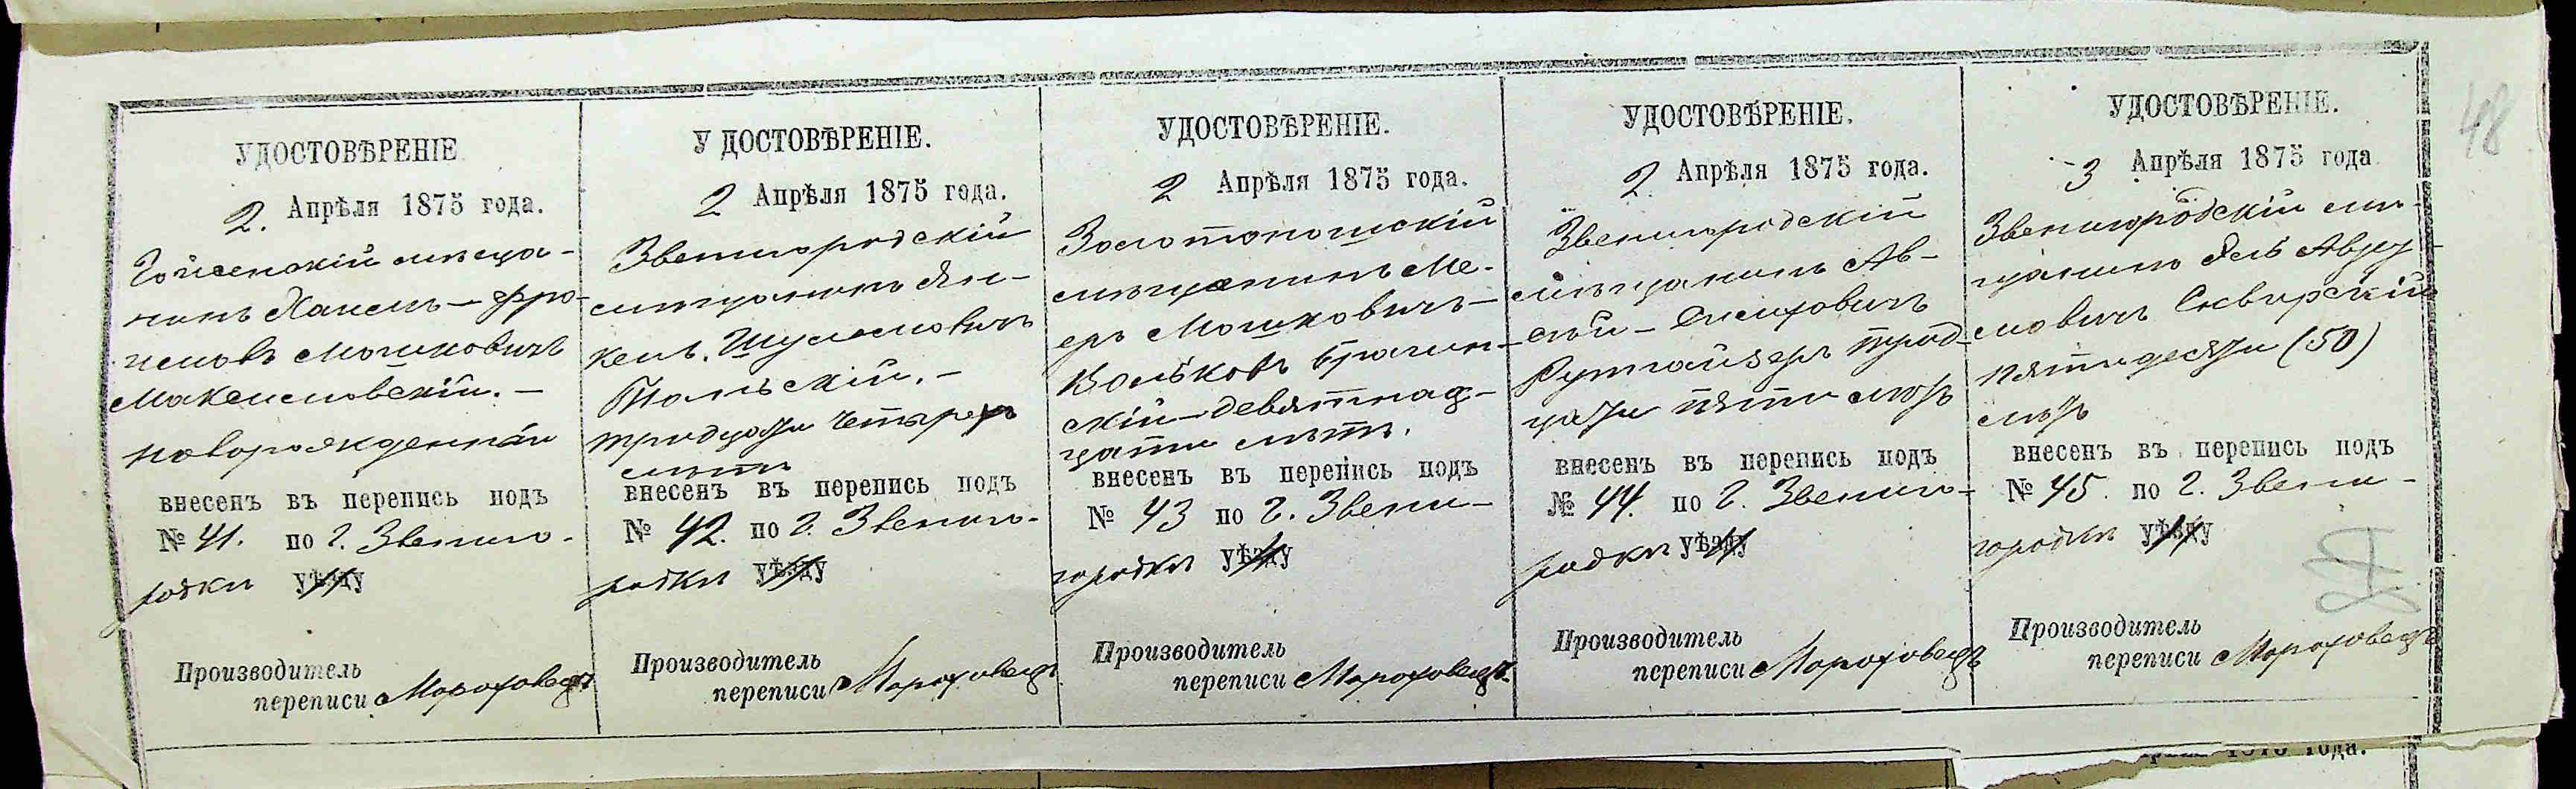 УДОСТОВѢРЕНІЕ
2. Апрѣля 1875 года.
Гайсенскій мѣща-
нинъ Хаимъ-Фро-
имовъ Мошковичъ
Макеимовскій.-
новорожденный
внесенъ въ перепись подъ
№ 41. по г. Звениго-
родки уѣзду
Производитель
переписи Мороховецъ
УДОСТОВѢРЕНІЕ.
2 Апрѣля 1875 года.
Звенигородскій
мѣщанинъ Ян-
кель Шулимовичъ
Тальскій.-
тридцати четырехъ
лѣтъ
внесенъ въ перепись подъ
№ 42. по г. Звениго-
родки уѣзду
Производитель
переписи Мороховецъ
УДОСТОВѢРЕНІЕ.
2 Апрѣля 1875 года.
Золотоношскій
мѣщанинъ Ме-
еръ Мошковичъ-
Вольковъ Брагин-
скій-девятнад-
цати лѣтъ.
внесенъ въ перепись подъ
№ 43 по г. Звени-
городки уѣзду
Производитель
переписи Мороховецъ
УДОСТОВѢРЕНІЕ.
2. Апрѣля 1875 года.
Звенигородскій
мѣщанинъ Ав-
рум-Сисиховичъ
Рутгайзеръ трид-
цати пяти лѣтъ
внесенъ въ перепись подъ
№ 44. по г. Звениго-
родки уѣзду
Производитель
переписи Мороховецъ
УДОСТОВѢРЕНІЕ.
3 Апрѣля 1875 года
Звенигородскій мѣ-
щанинъ Эль Авру-
мовичъ Сквирскій
пятидесяти (50)
лѣтъ
внесенъ въ перепись подъ
№ 45. по г. Звени-
городки уѣзду
Производитель
переписи Мороховецъ
48
1875 года.